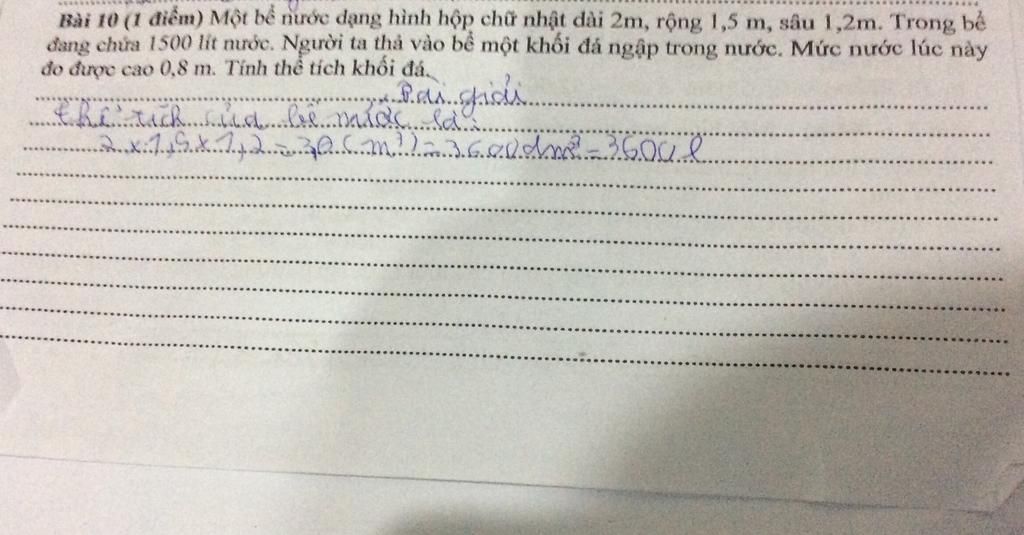 Bài 10 (1 điểm) Một bể nước dạng hình hộp chữ nhật dài 2m, rộng 1,5 m, sâu 1,2m. Trong bể
đang chứa 1500 lít nước. Người ta thả vào bể một khối đá ngập trong nước. Mức nước lúc này
đo được cao 0,8 m. Tính thể tích khối đá.
Bài giải
thể tích của bể nước là:
2 x 1,5 x 1,2 = 3,6 (m³) = 3600dm³ = 3600 l